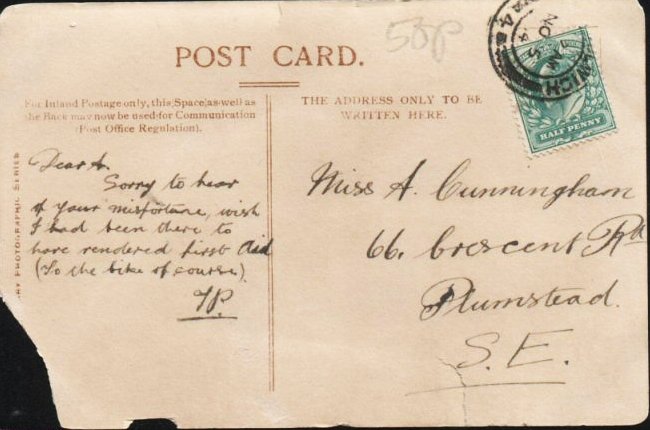 50p
POST CARD.
For Inland Postage only, this Space as well as
the Back may now be used for Communication
(Post Office Regulation).
THE ADDRESS ONLY TO BE
WRITTEN HERE.
HALF PENNY
RY PHOTOGRAPHIC SERIES
Dear A.
Sorry to hear
of your misfortune, wish
I had been there to
have rendered first aid
(To the bike of course).
Miss A. Cunningham
66. Crescent Rd
Plumstead.
S.E.
WICH
NO 5